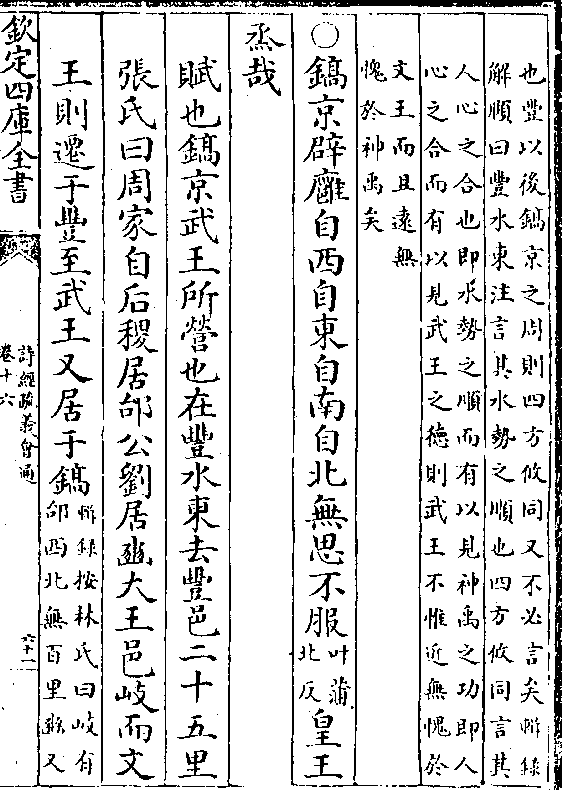 也豐以後鎬京之周則四方攸同又不必言矣輯錄
解頤曰豐水東注言其水勢之順也四方攸同言其
人心之合也即水勢之順而有以見神禹之功即人
心之合而有以見武王之德則武王不惟近無愧於
文王而且遠無
愧於神禹矣
○鎬京辟廱自西自東自南自北無思不服叶蒲北反皇王
烝哉
賦也鎬京武王所營也在豐水東去豐邑二十五里
張氏曰周家自后稷居邰公劉居豳大王邑岐而文
王則遷于豐至武王又居于鎬輯錄按林氏曰岐有
邰西北無百里豳又
欽定四庫全書
詩經疏義會通
卷十六
六十一